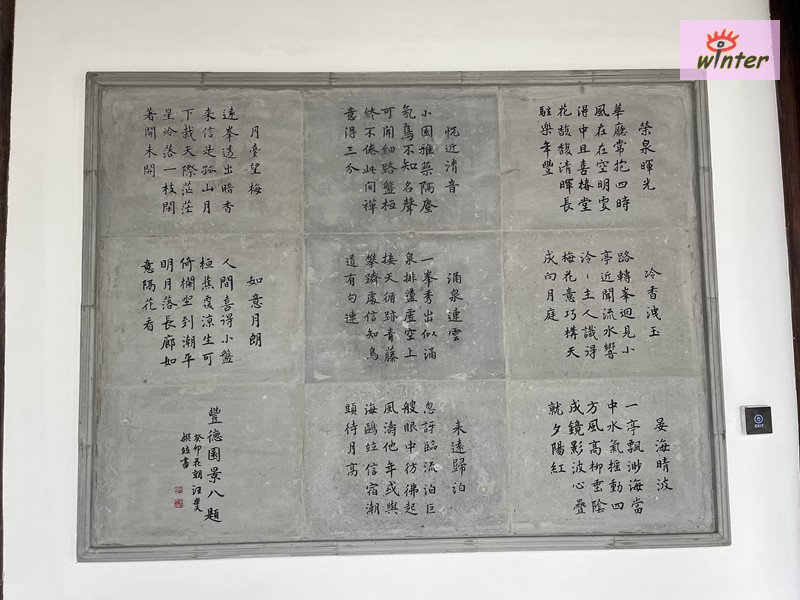 榮泉暉光
華廳常抱四時
風在在空明雯
得中且喜椿堂
花馥馥清暉長
駐樂年豐
悅近清音
小園雅築隔塵
氛鳥不知名聲
可聞細路盤桓
終不倦此間禪
意得三分
月臺望梅
遠峯透出暗香
来信是孤山月
下栽天際茫茫
星冷落一枝閑
著開未開
冷香洩玉
路轉峯迴見小
亭近聞流水響
泠〻主人識得
梅花意巧構天
成向月庭
涌泉連雲
一峯秀出似涌
泉排盪虛空上
接天循跡青藤
攀躋處信知鳥
道有勾連
如意月朗
人間喜得小盤
桓蕉處涼生可
倚欄空到潮平
明月落長廊如
意隔花看
晏海晴波
一亭飄渺海當
中水氣推動四
方風高柳垂陰
成鏡影波心疊
就夕陽紅
来遠歸泊
忽訝臨流泊巨
艘眼中彷彿起
風濤他年或與
海鷗信宿潮
頭待月高
豐德園景八題
癸卯花朝汪
撰書
EXIT
winter